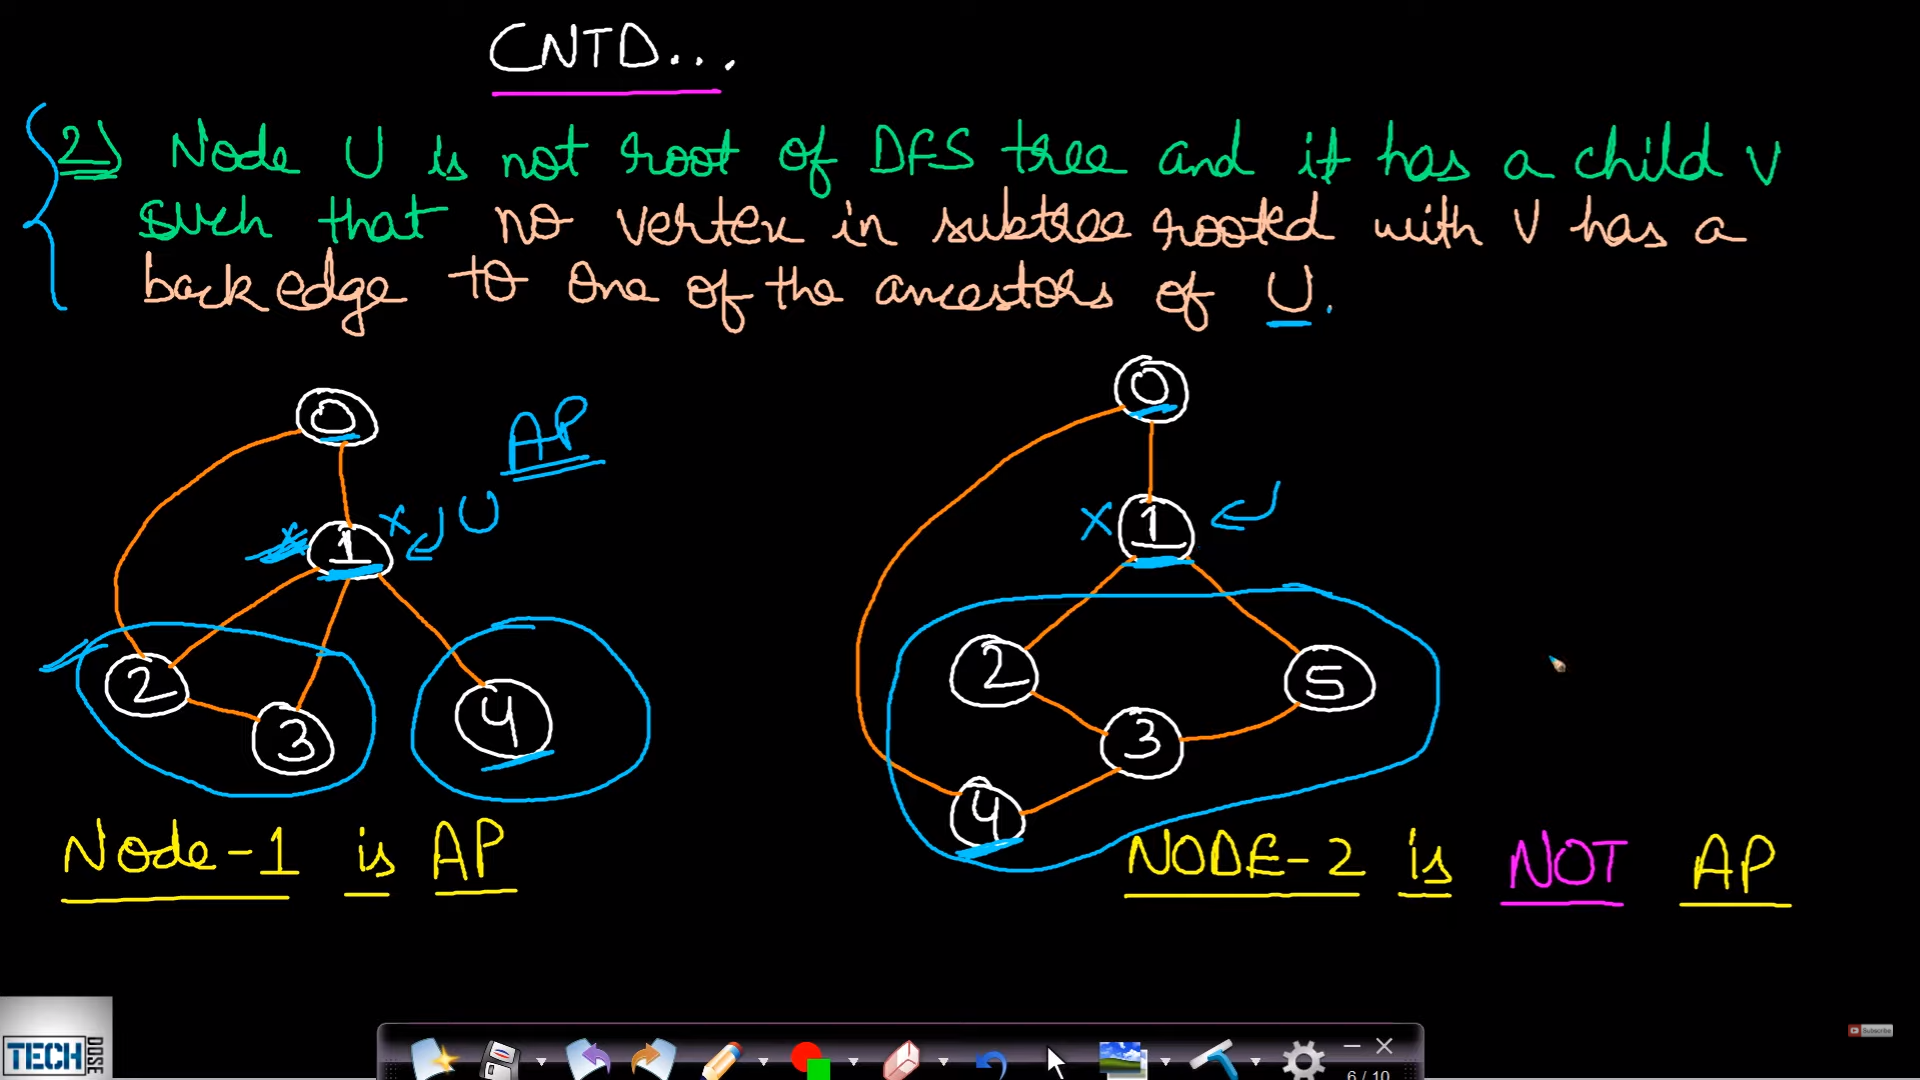 CNTD...
2) Node U is not root of DFS tree and it has a child V
such that no vertex in subtree rooted with V has a
back edge to one of the ancestors of U.
0
AP
x 1 x U
2
3
4
Node-1 is AP
0
x 1
2
5
3
4
NODE-2 is NOT AP
TECH DOSE
Subscribe
6 / 10